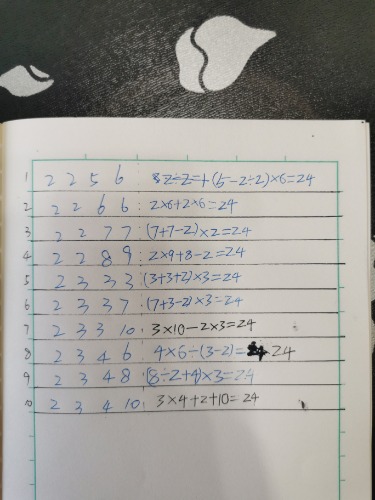 1 2 2 5 6 (5-2÷2)×6=24
2 2 2 6 6: 2×6+2×6=24
3 2 2 7 7: (7+7-2)×2=24
4 2 2 8 9: 2×9+8-2=24
5 2 3 3 3: (3+3+2)×3=24
6 2 3 3 7: (7+3-2)×3=24
7 2 3 3 10: 3×10-2×3=24
8 2 3 4 6: 4×6÷(3-2)=24
9 2 3 4 8: (8÷2+4)×3=24
10 2 3 4 10: 3×4+2+10=24